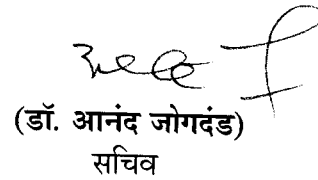 (डॉ. आनंद जोगदंड)
सचिव